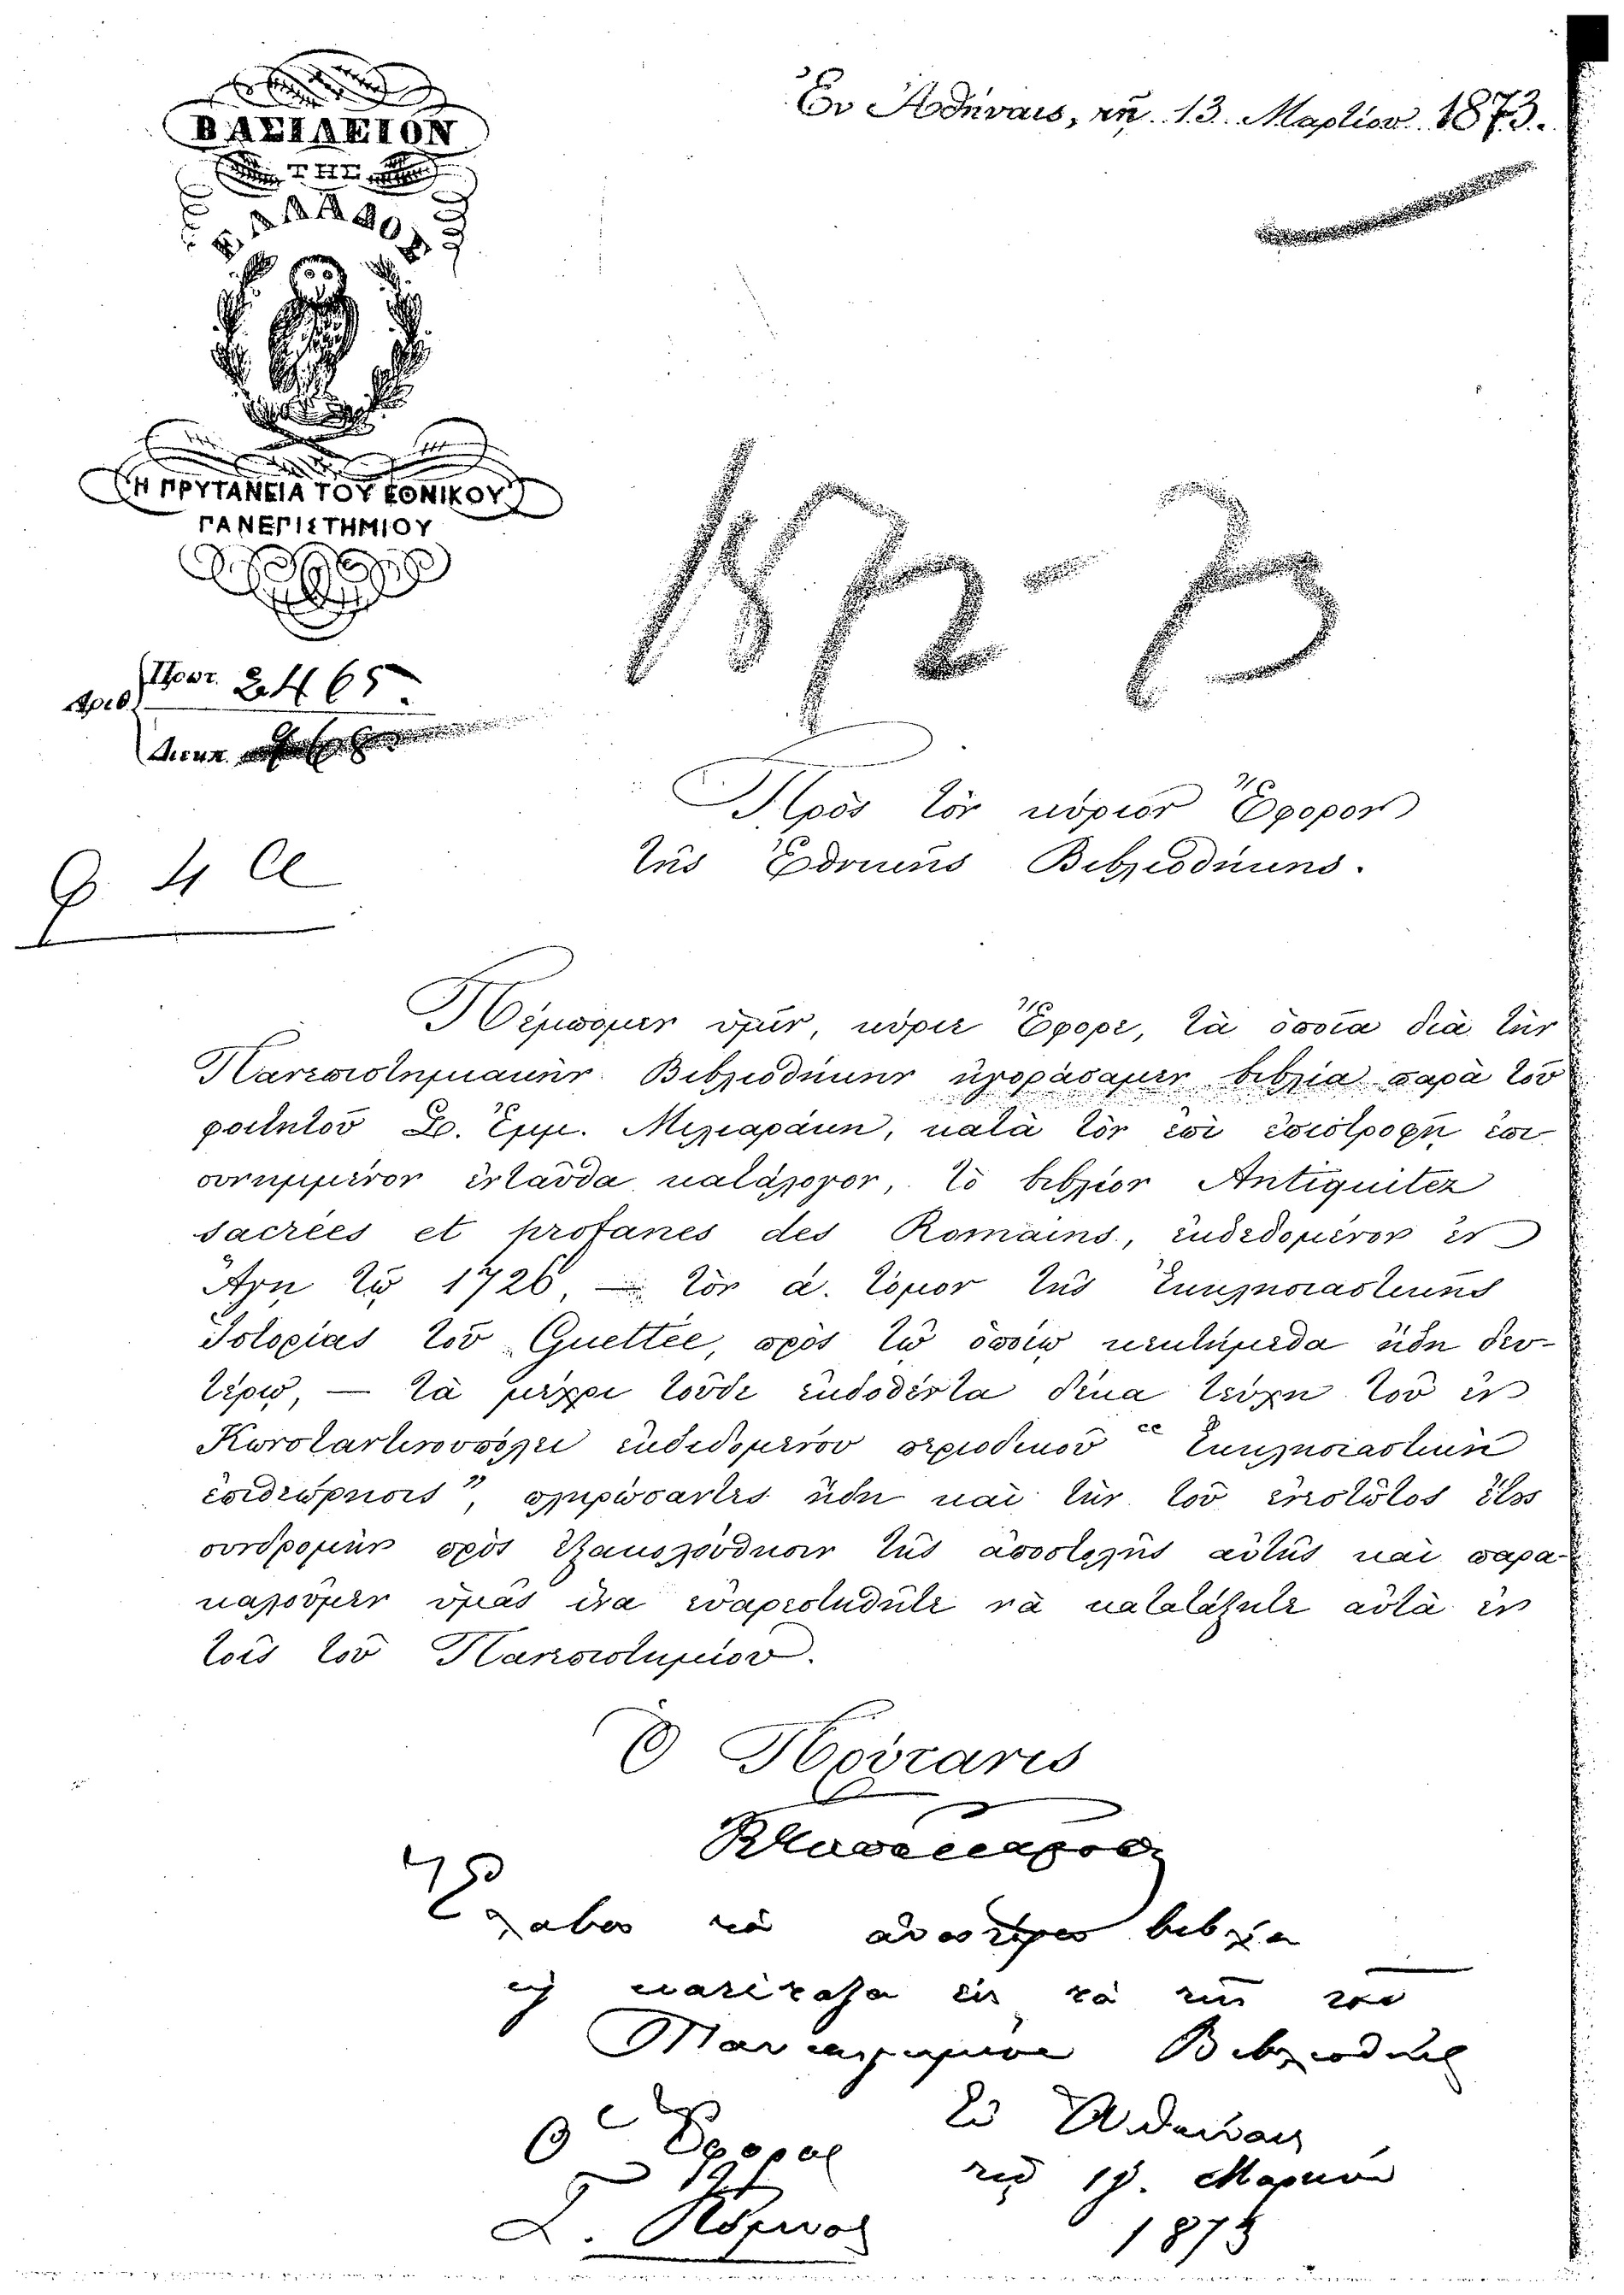 Ἐν Ἀθήναις, τῇ 13 Μαρτίου 1873.
ΒΑΣΙΛΕΙΟΝ
ΤΗΣ
ΕΛΛΑΔΟΣ
Η ΠΡΥΤΑΝΕΙΑ ΤΟΥ ΕΘΝΙΚΟΥ
ΠΑΝΕΠΙΣΤΗΜΙΟΥ
Ἀριθ.
Πρωτ. 2465
Διεκπ.
72-3
Πρὸς τὸν κύριον Ἔφορον
τῆς Ἐθνικῆς Βιβλιοθήκης.
Πέμπομεν ὑμῖν, κύριε Ἔφορε, τὰ ὁποῖα διὰ τὴν
Πανεπιστημιακὴν Βιβλιοθήκην ἠγοράσαμεν βιβλία παρὰ τοῦ
φοιτητοῦ Σ. Ἐμμ. Μηλιαράκη, κατὰ τὸν ἐπὶ ἐπιστροφῇ ἐπι
συνημμένον ἐνταῦθα κατάλογον, τὸ βιβλίον Antiquitez
sacrées et profanes des Romains, ἐκδεδομένον ἐν
Ἅγῃ τῷ 1726, — τὸν α. τόμον τῆς Ἐκκλησιαστικῆς
Ἱστορίας τοῦ Guettée, πρὸς τῷ ὁποίῳ κεκτήμεθα ἤδη δευ-
τέρῳ, — τὰ μέχρι τοῦδε ἐκδοθέντα δέκα τεύχη τοῦ ἐν
Κωνσταντινουπόλει ἐκδιδομένου περιοδικοῦ "Ἐκκλησιαστικὴ
ἐπιθεώρησις", πληρώσαντες ἤδη καὶ τὴν τοῦ ἐνεστῶτος ἔτους
συνδρομὴν πρὸς ἐξακολούθησιν τῆς ἀποστολῆς αὐτῆς καὶ παρα-
καλοῦμεν ὑμᾶς ἵνα εὐαρεστηθῆτε νὰ κατατάξητε αὐτὰ ἐν
τοῖς τοῦ Πανεπιστημίου.
Ὁ Πρύτανις
Ἔλαβον τὰ ἀνωτέρω βιβλία
καὶ κατέταξα εἰς τὰ τῆς τοῦ
Πανεπιστημίου Βιβλιοθήκης
Ὁ Ἔφορος
Ἐν Ἀθήναις
τῇ 19 Μαρτίου
1873